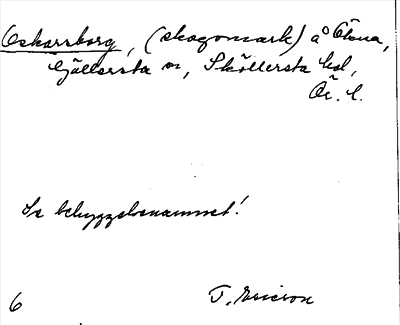 Oskarsborg, (skogsmark) å Älena,
Gällersta sn, Sköllersta hd,
Ör. l.
Se bebyggelsenamnet!
6 T. Ericson